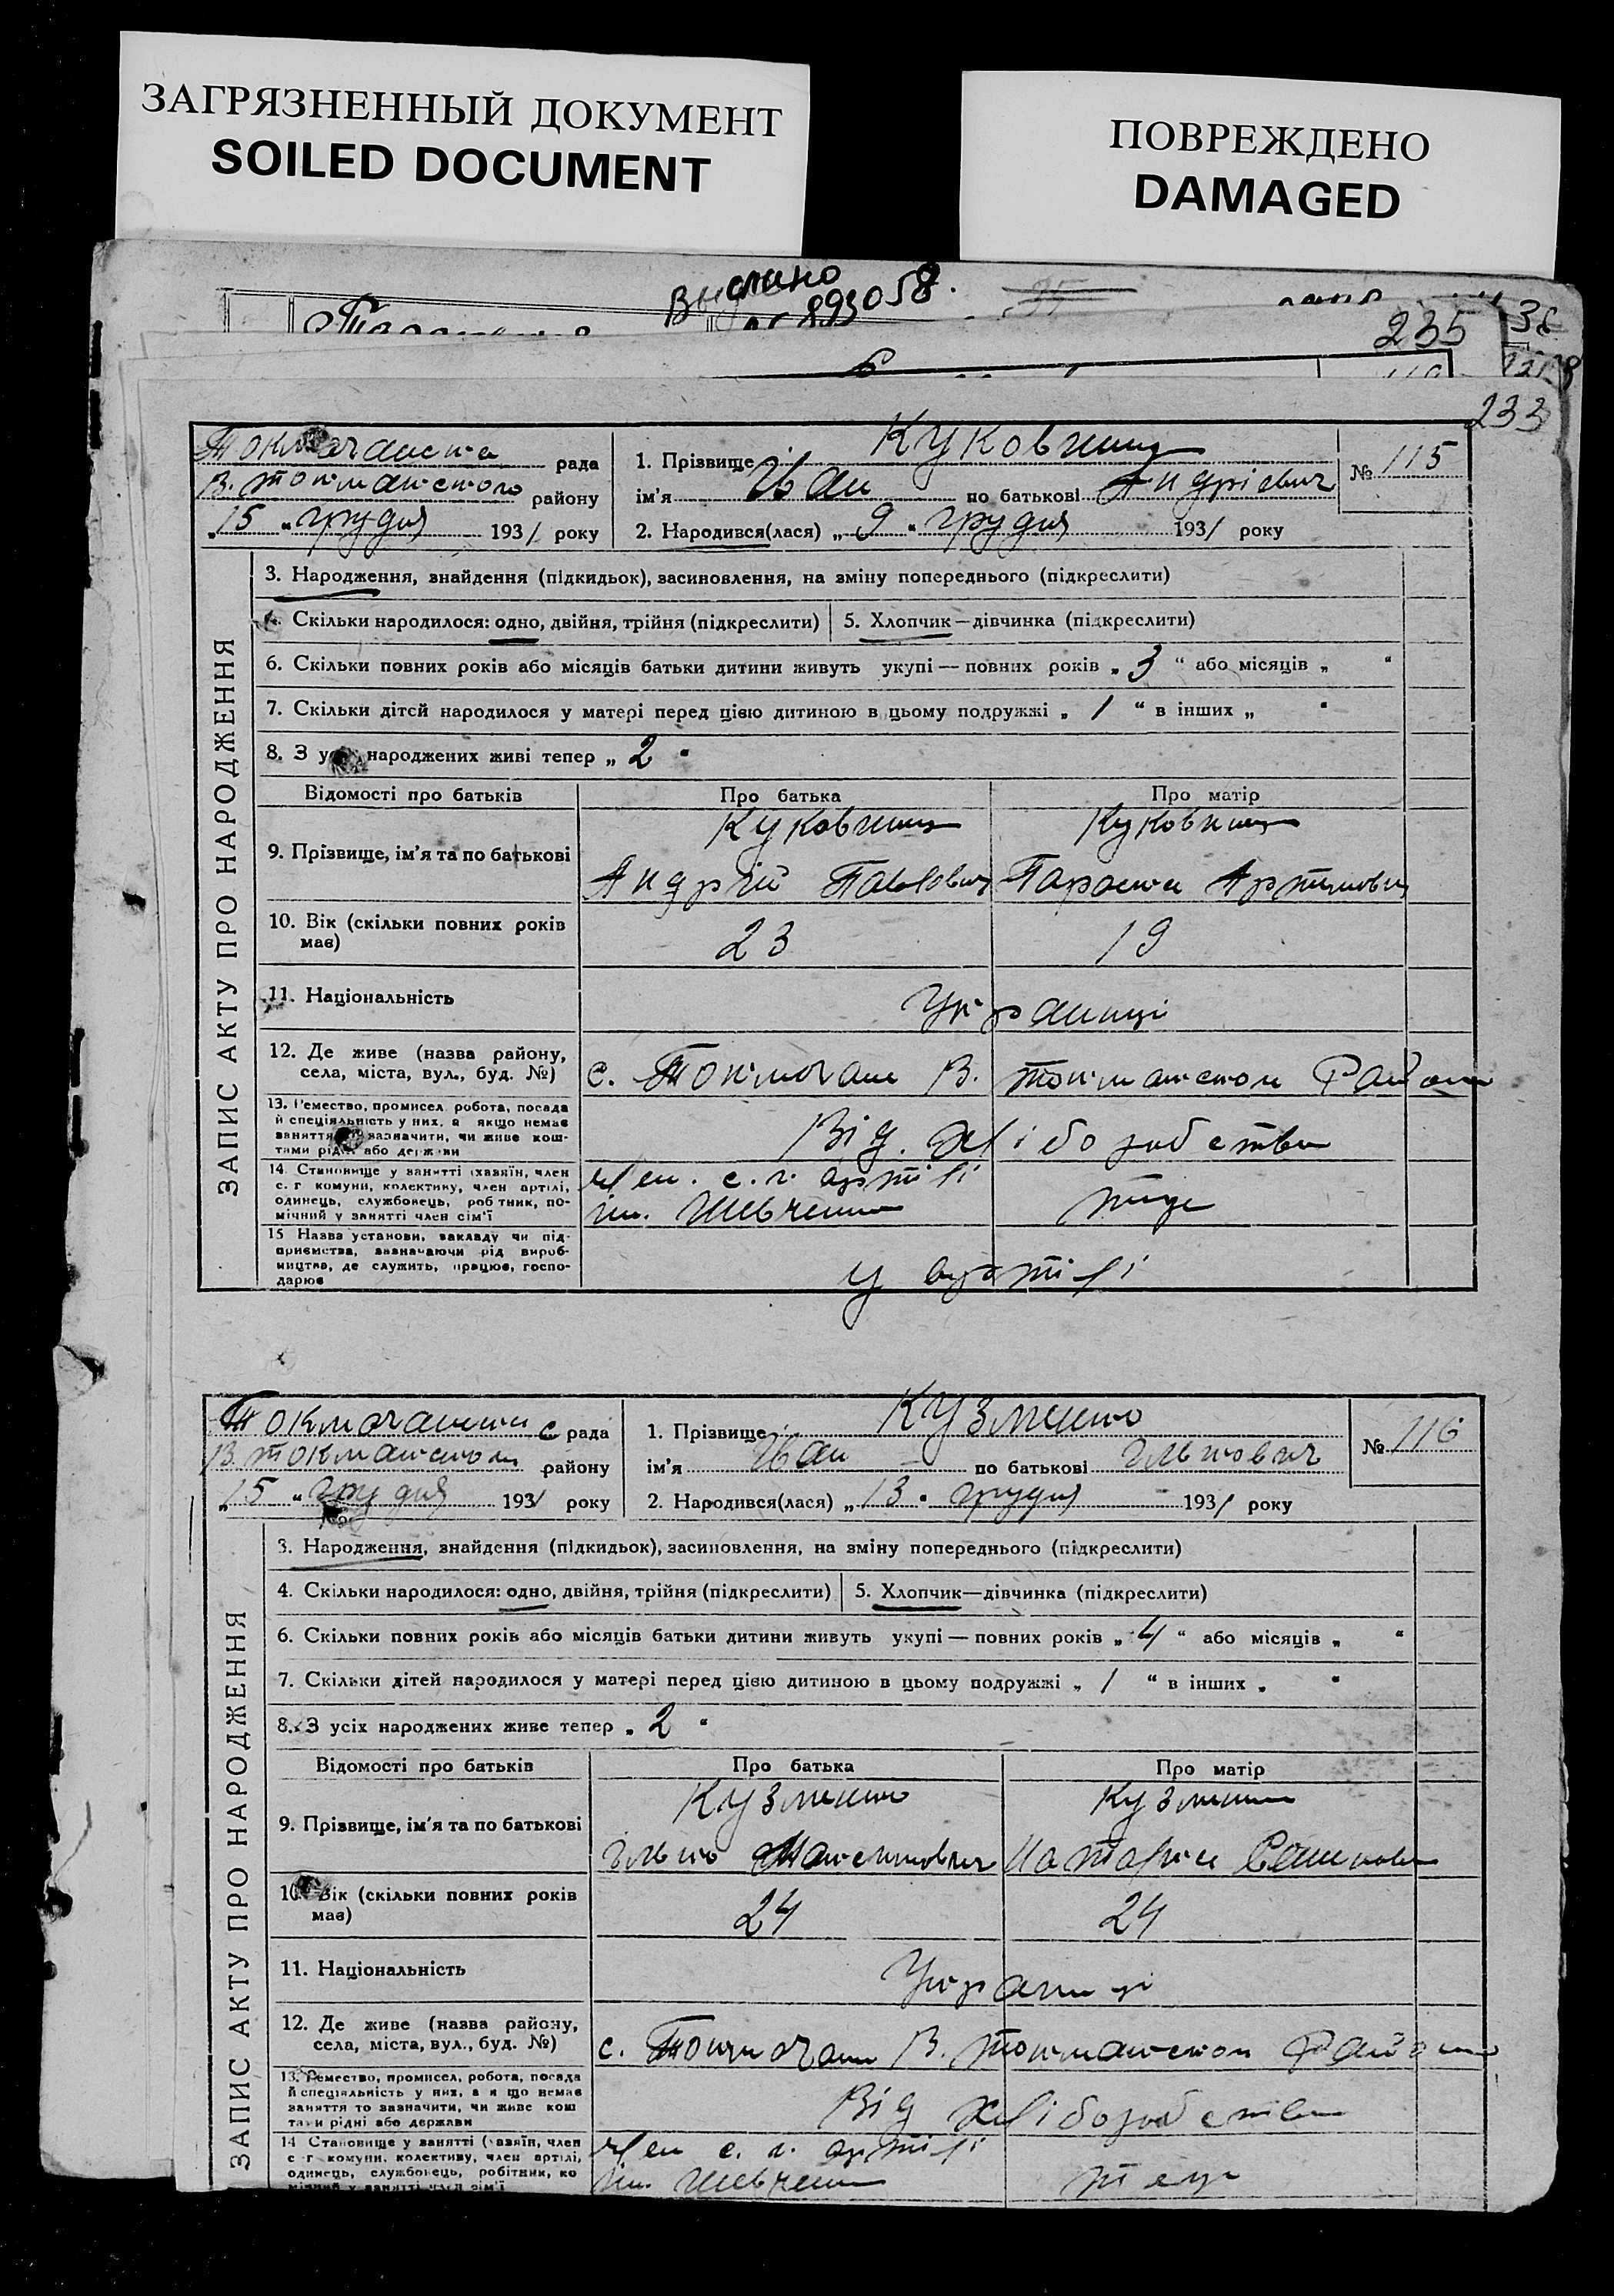 ЗАГРЯЗНЕННЫЙ ДОКУМЕНТ
SOILED DOCUMENT
ПОВРЕЖДЕНО
DAMAGED
893058.
235
38
233
рада
району
„15 " грудня 1931 року
1. Прізвище
ім'я Іван по батькові Андрієвич
2. Народився(лася) „ 9 " грудня 1931 року
№ 115
ЗАПИС АКТУ ПРО НАРОДЖЕННЯ
3. Народження, знайдення (підкидьок), засиновлення, на зміну попереднього (підкреслити)
4. Скільки народилося: одно, двійня, трійня (підкреслити)
5. Хлопчик—дівчинка (підкреслити)
6. Скільки повних років або місяців батьки дитини живуть укупі — повних років „ 3 " або місяців „ "
7. Скільки дітей народилося у матері перед цією дитиною в цьому подружжі „ 1 " в інших „ "
8. З народжених живі тепер „ 2 "
Відомості про батьків
Про батька
Про матір
9. Прізвище, ім'я та по батькові
Андрій Павлович
10. Вік (скільки повних років
має)
23
19
11. Національність
Українці
12. Де живе (назва району,
села, міста, вул., буд. №)
13. Ремество, промисел, робота, посада
й спеціяльність у них, а якщо немає
заняття зазначити, чи живе кош-
тами рідні або держави
Від. хліборобства
14. Становище у занятті (хазяїн, член
с. г. комуни, колективу, член артілі,
одинець, службовець, робітник, по-
мічний у занятті член сім'ї
Член. с. г. артілі
ім. Шевченка
15. Назва установи, закладу чи під-
приємства, зазначаючи рід вироб-
ництва, де служить, працює, госпо-
дарює
у артілі
с рада
району
„15 " грудня 1931 року
1. Прізвище Кузменко
ім'я Іван по батькові Ількович
2. Народився(лася) „13 " грудня 1931 року
№ 116
ЗАПИС АКТУ ПРО НАРОДЖЕННЯ
3. Народження, знайдення (підкидьок), засиновлення, на зміну попереднього (підкреслити)
4. Скільки народилося: одно, двійня, трійня (підкреслити)
5. Хлопчик—дівчинка (підкреслити)
6. Скільки повних років або місяців батьки дитини живуть укупі — повних років „ 4 " або місяців „ "
7. Скільки дітей народилося у матері перед цією дитиною в цьому подружжі „ 1 " в інших „ "
8. З усіх народжених живе тепер „ 2 "
Відомості про батьків
Про батька
Про матір
Кузменко
Кузменко
9. Прізвище, ім'я та по батькові
Ілько Максимович
10. Вік (скільки повних років
має)
24
24
11. Національність
Українці
12. Де живе (назва району,
села, міста, вул., буд. №)
13. Ремество, промисел, робота, посада
й спеціяльність у них, а якщо немає
заняття то зазначити, чи живе кош
тами рідні або держави
Від хліборобства
14 Становище у занятті (хазяїн, член
с г комуни, колективу, член артілі,
одинець, службовець, робітник, по
мічний у занятті член сім'ї
Член с. г. артілі
ім. Шевченка